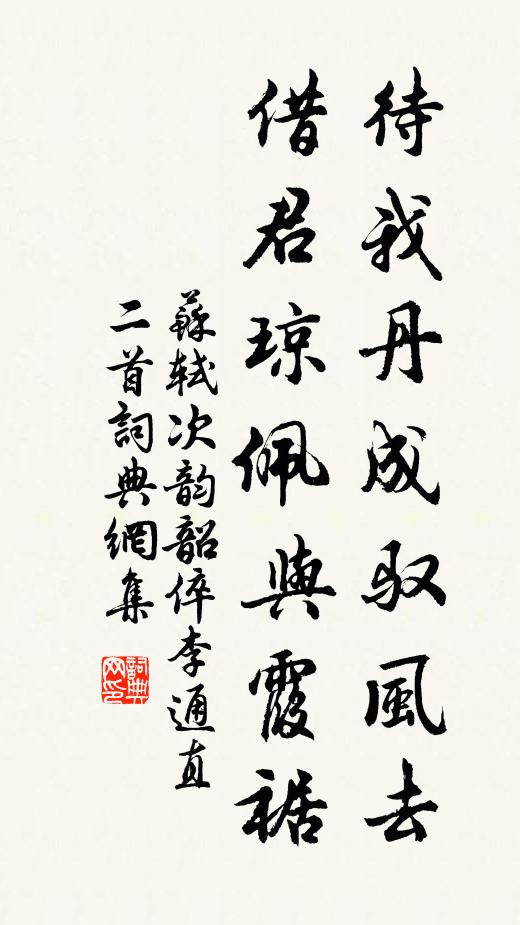 待我丹成馭風去
借君琼佩與霞裾
蘇軾次韵韶倅李通直
二首詞典網集
詞典网印